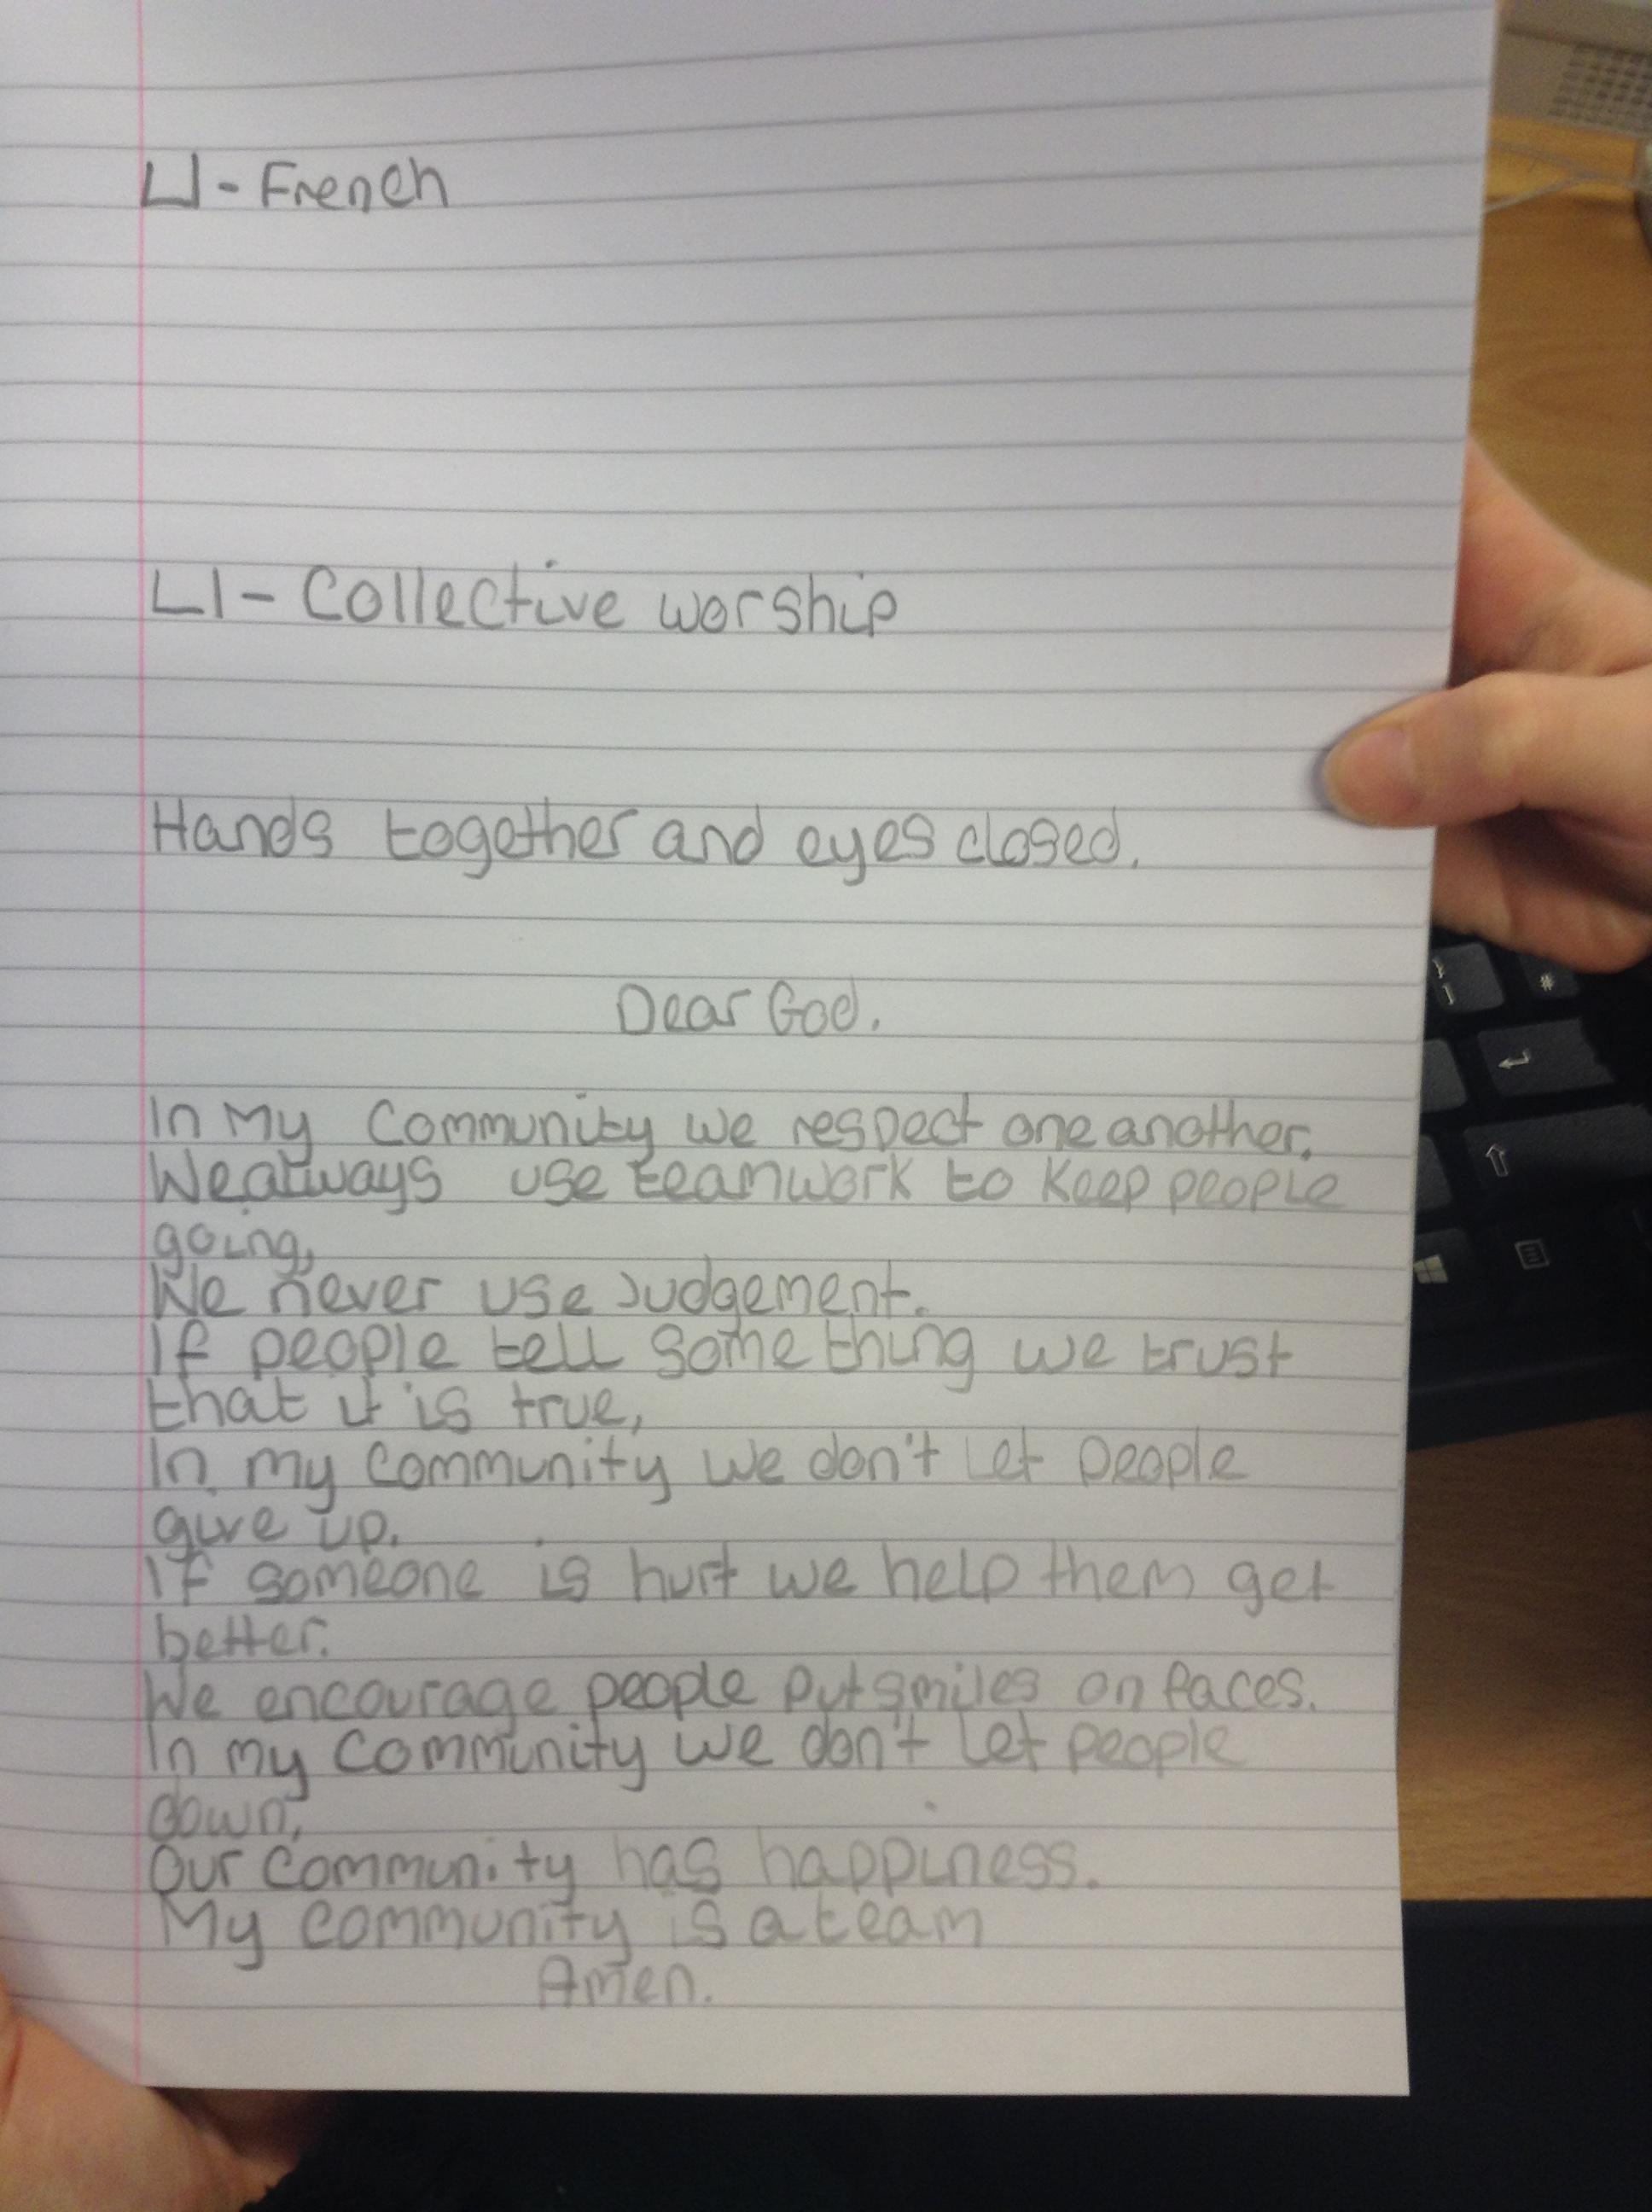 LI - French
LI - Collective worship
Hands together and eyes closed.
Dear God.
In My Community we respect one another.
We always use teamwork to Keep people
going,
We never use Judgement.
If people tell something we trust
that it is true,
In my community we don't Let people
give up.
If someone is hurt we help them get
better.
We encourage people put smiles on faces.
In my community we don't Let people
down,
Our community has happiness.
My community is a team
Amen.